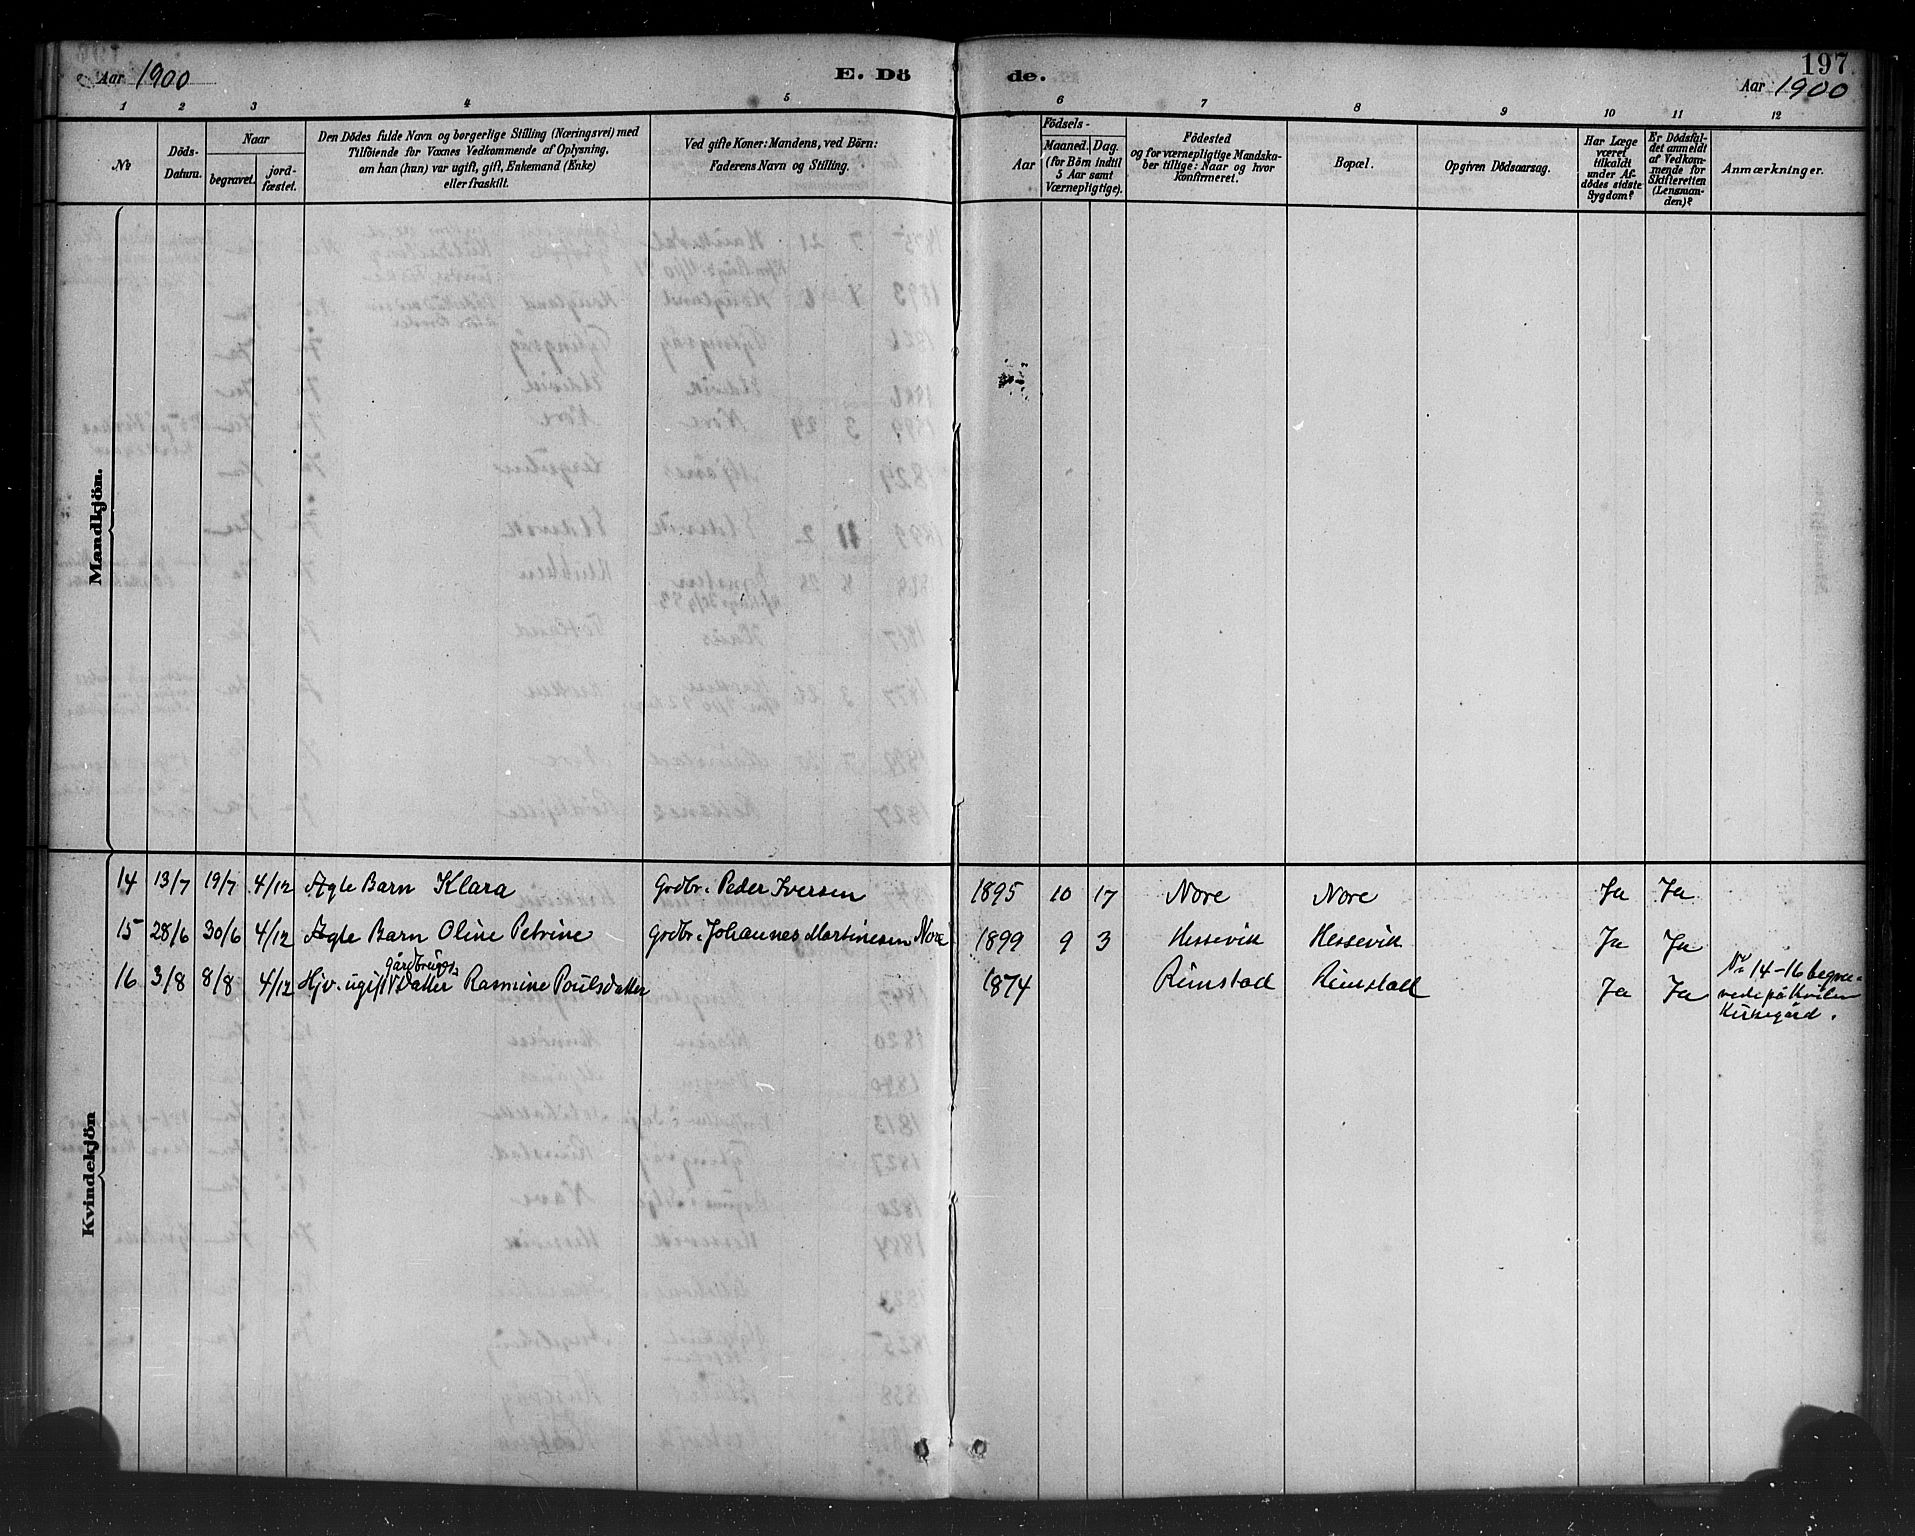 Aar 1900
E. Dö
de.
197
Aar 1900
1 2 3 4 5 6 7 8 9 10 11 12
No
Döds-
Datum.
Naar
begravet.
jord-
fæstet.
Den Dödes fulde Navn og borgerlige Stilling (Næringsvei) med
Tilföiende for Voxnes Vedkommende af Oplysning,
om han (hun) var ugift, gift, Enkemand (Enke)
eller fraskilt.
Ved gifte Koner: Mandens, ved Börn:
Faderens Navn og Stilling.
Födsels-
Aar
Maaned.
Dag.
(for Börn indtil
5 Aar samt
Værnepligtige).
Födested
og for værnepligtige Mandska-
ber tillige: Naar og hvor
konfirmeret.
Bopæl.
Opgiven Dödsaarsag.
Har Læge
været
tilkaldt
under Af-
dödes sidste
Sygdom?
Er Dödsfal-
det anmeldt
af Vedkom-
mende for
Skifteretten
(Lensman-
den)?
Anmærkninger.
Mandkjön.
Kvindekjön
14 13/7 19/7 4/12 Ægte Barn Klara Grdbr. Peder Iversen 1895 10 17 Nore Nore Ja Ja
15 28/6 30/6 4/12 Ægte Barn Oline Petrine Grdbr. Johannes Martinesen Nore 1899 9 3 Hessevik Hessevik Ja Ja
gårdbruger-
16 3/8 8/8 4/12 Hjv. ugift Datter Rasmine Poulsdatter 1874 Rimstad Rimstad Ja Ja
No 14-16 begra-
vede på Kvilen
Kirkegård.